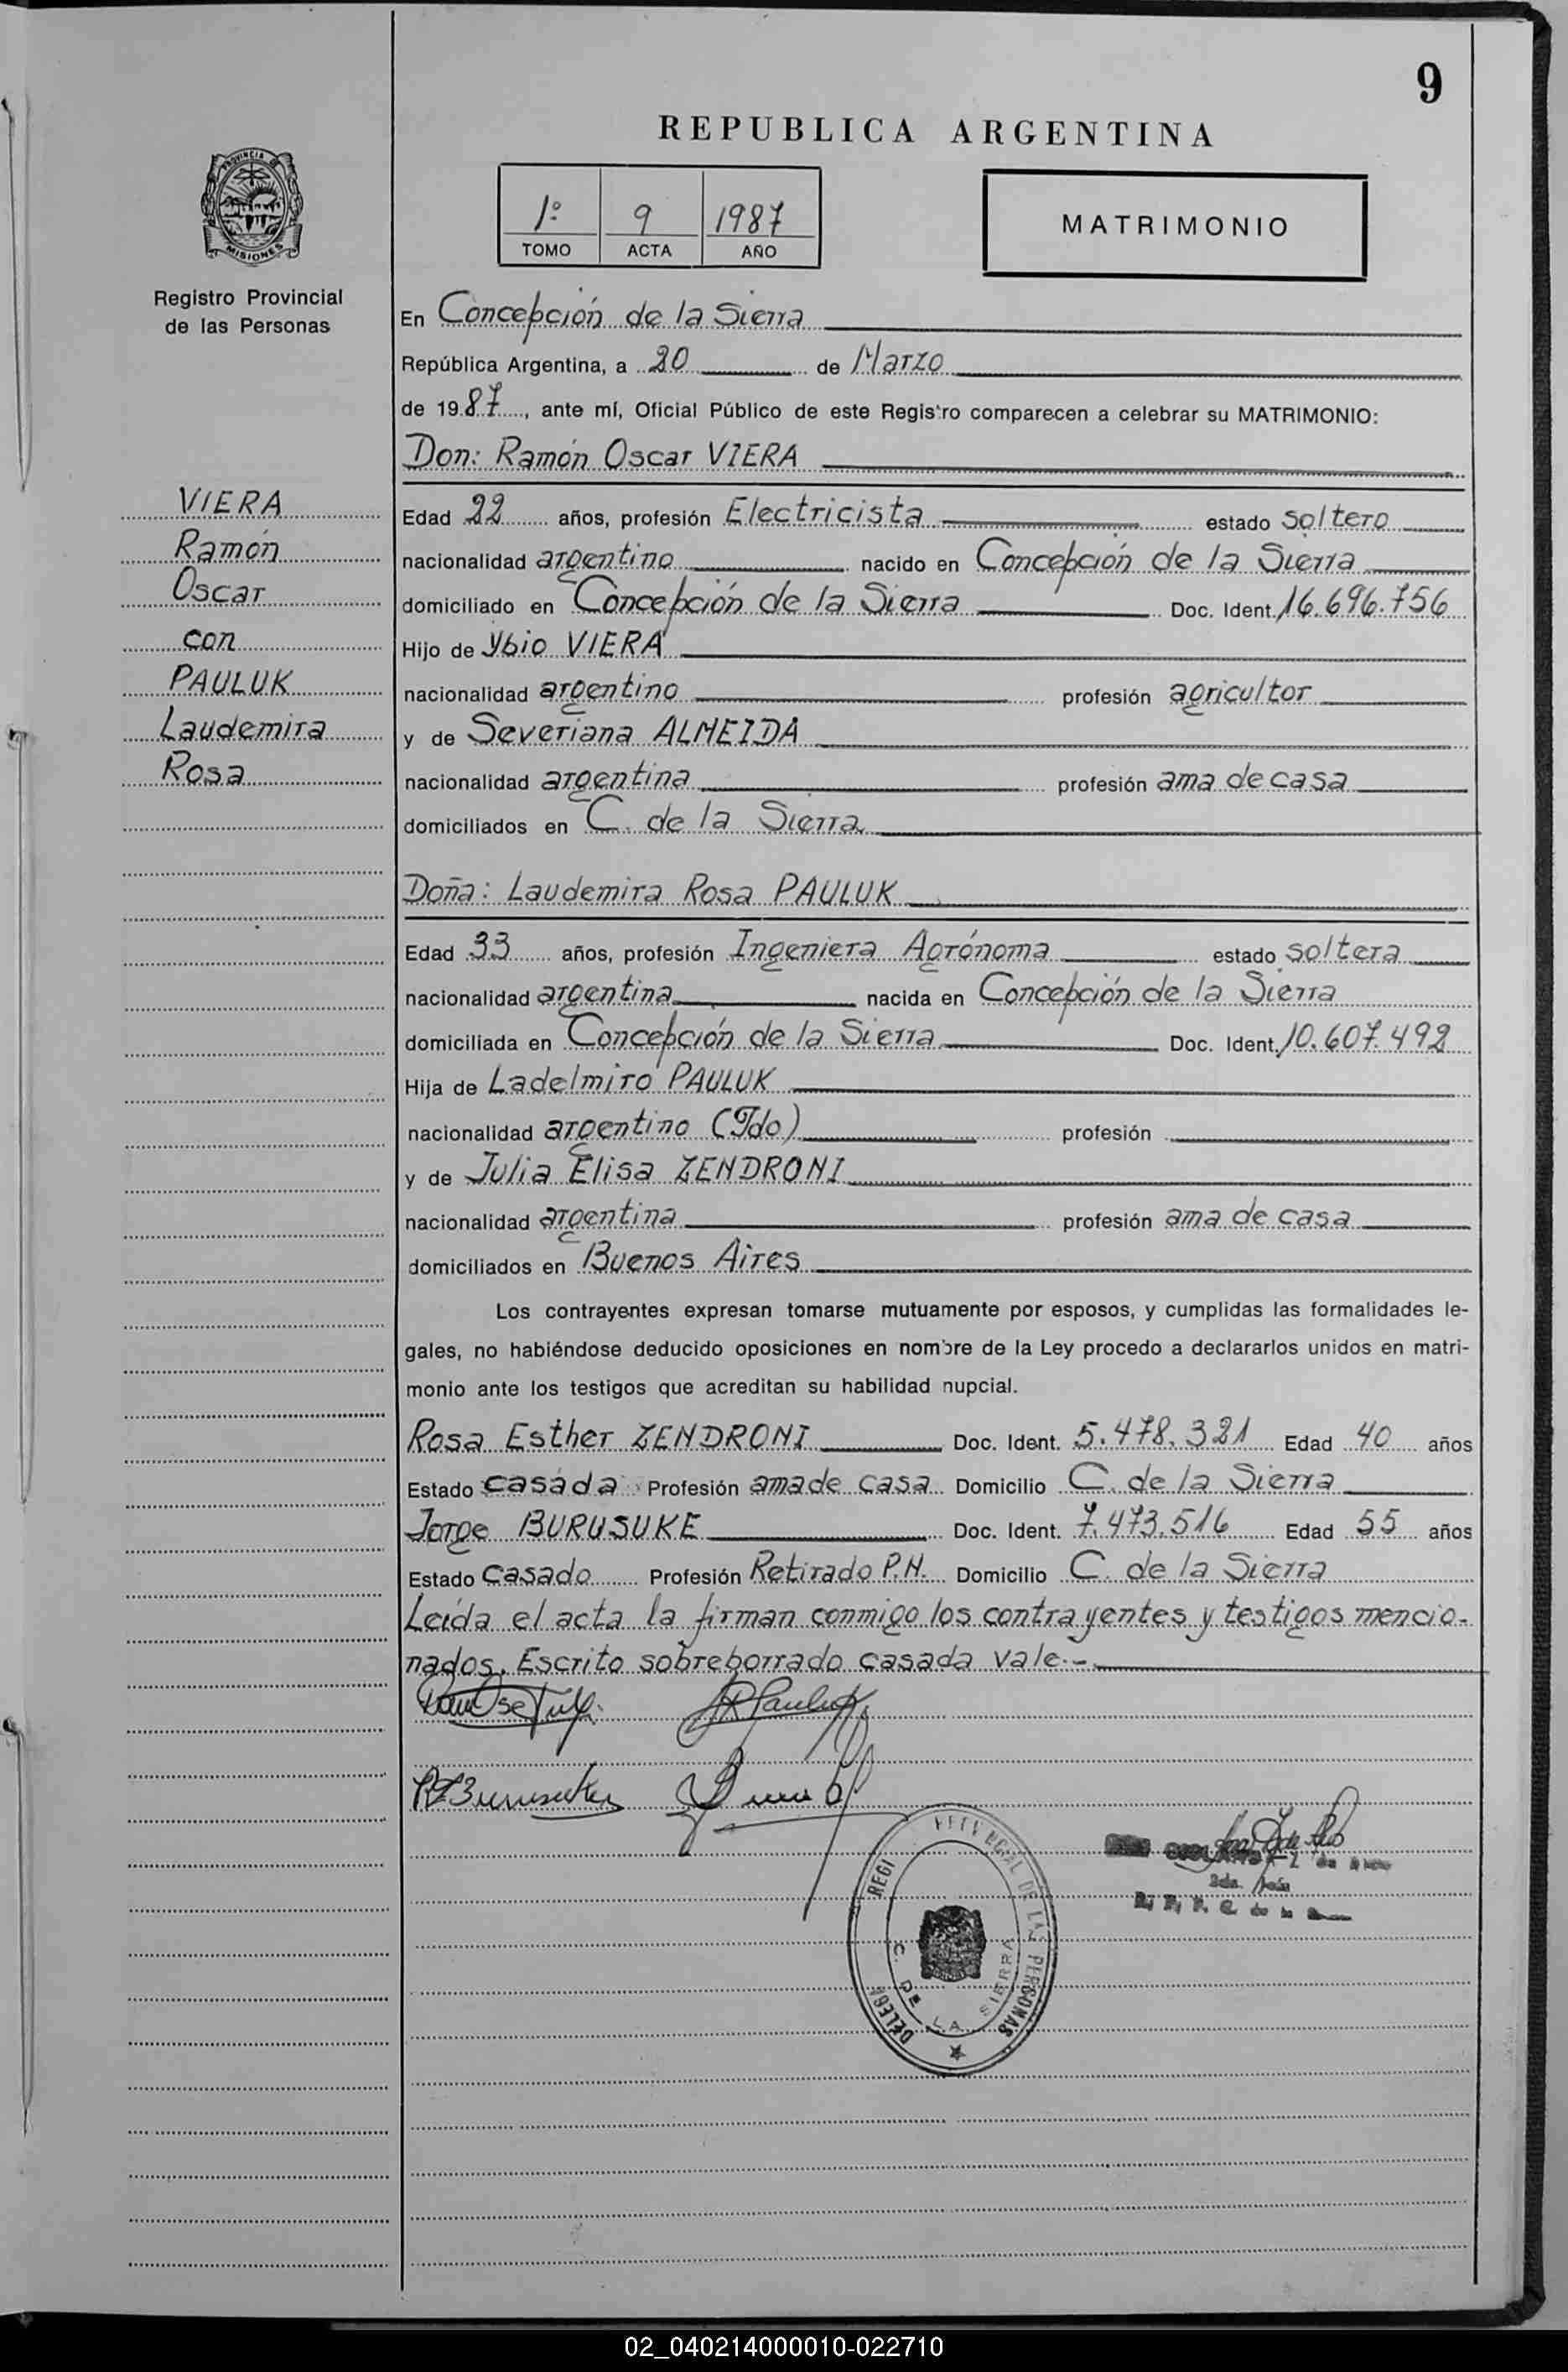 9
REPUBLICA ARGENTINA
PROVINCIA DE
MISIONES
Registro Provincial
de las Personas
1º 9 1987
TOMO ACTA AÑO
MATRIMONIO
En Concepción de la Sierra
República Argentina, a 20 de Marzo
de 1987, ante mí, Oficial Público de este Registro comparecen a celebrar su MATRIMONIO:
Don: Ramón Oscar VIERA
VIERA
Ramón
Oscar
con
PAULUK
Laudemira
Rosa
Edad 22 años, profesión Electricista estado soltero
nacionalidad argentino nacido en Concepción de la Sierra
domiciliado en Concepción de la Sierra Doc. Ident. 16.696.756
Hijo de Ybio VIERA
nacionalidad argentino profesión agricultor
y de Severiana ALMEIDA
nacionalidad argentina profesión ama de casa
domiciliados en C. de la Sierra
Doña: Laudemira Rosa PAULUK
Edad 33 años, profesión Ingeniera Agrónoma estado soltera
nacionalidad argentina nacida en Concepción de la Sierra
domiciliada en Concepción de la Sierra Doc. Ident. 10.607.492
Hija de Ladelmiro PAULUK
nacionalidad argentino (Fdo) profesión
y de Julia Elisa ZENDRONI
nacionalidad argentina profesión ama de casa
domiciliados en Buenos Aires
Los contrayentes expresan tomarse mutuamente por esposos, y cumplidas las formalidades le-
gales, no habiéndose deducido oposiciones en nombre de la Ley procedo a declararlos unidos en matri-
monio ante los testigos que acreditan su habilidad nupcial.
Rosa Esther ZENDRONI Doc. Ident. 5.478.321 Edad 40 años
Estado casada Profesión ama de casa Domicilio C. de la Sierra
Jorge BURUSUKE Doc. Ident. 7.473.516 Edad 55 años
Estado casado Profesión Retirado P.N. Domicilio C. de la Sierra
Leída el acta la firman conmigo los contrayentes y testigos mencio-
nados. Escrito sobreborrado casada vale.-
DE LAS PERSONAS
C. DE LA SIERRA
02_040214000010-022710